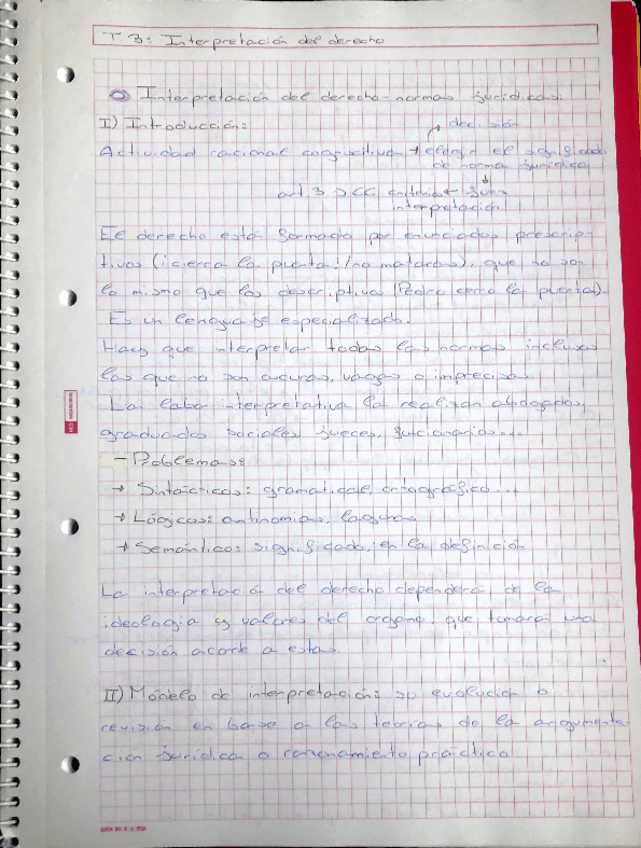 T.3: Interpretación del derecho
Interpretación del derecho-normas jurídicas:
I) Introducción:
decisión
Actividad racional cognoscitiva → elegir el significado
de norma jurídica
art. 3 CC criterio ← juez
interpretación
El derecho está formado por enunciados prescrip-
tivos (¡cierra la puerta!/no mataras), que no son
lo mismo que los descriptivos (Pedro cerro la puerta).
Es un lenguaje especializado.
Hay que interpretar todas las normas inclusas
las que no son oscuras, vagas o imprecisas
La labor interpretativa la realizan abogados,
graduados sociales, jueces, funcionarios...
- Problemas:
→ Sintácticos: gramatical, ortográfico...
→ Lógicos: antinomias, lagunas
→ Semántico: significado, en la definición
La interpretación del derecho dependerá de la
ideología y valores del organo, que tomará una
decisión acorde a estas.
II) Modelo de interpretación: su evolución o
revisión en base a las teorías de la argumenta-
ción jurídica o razonamiento práctico